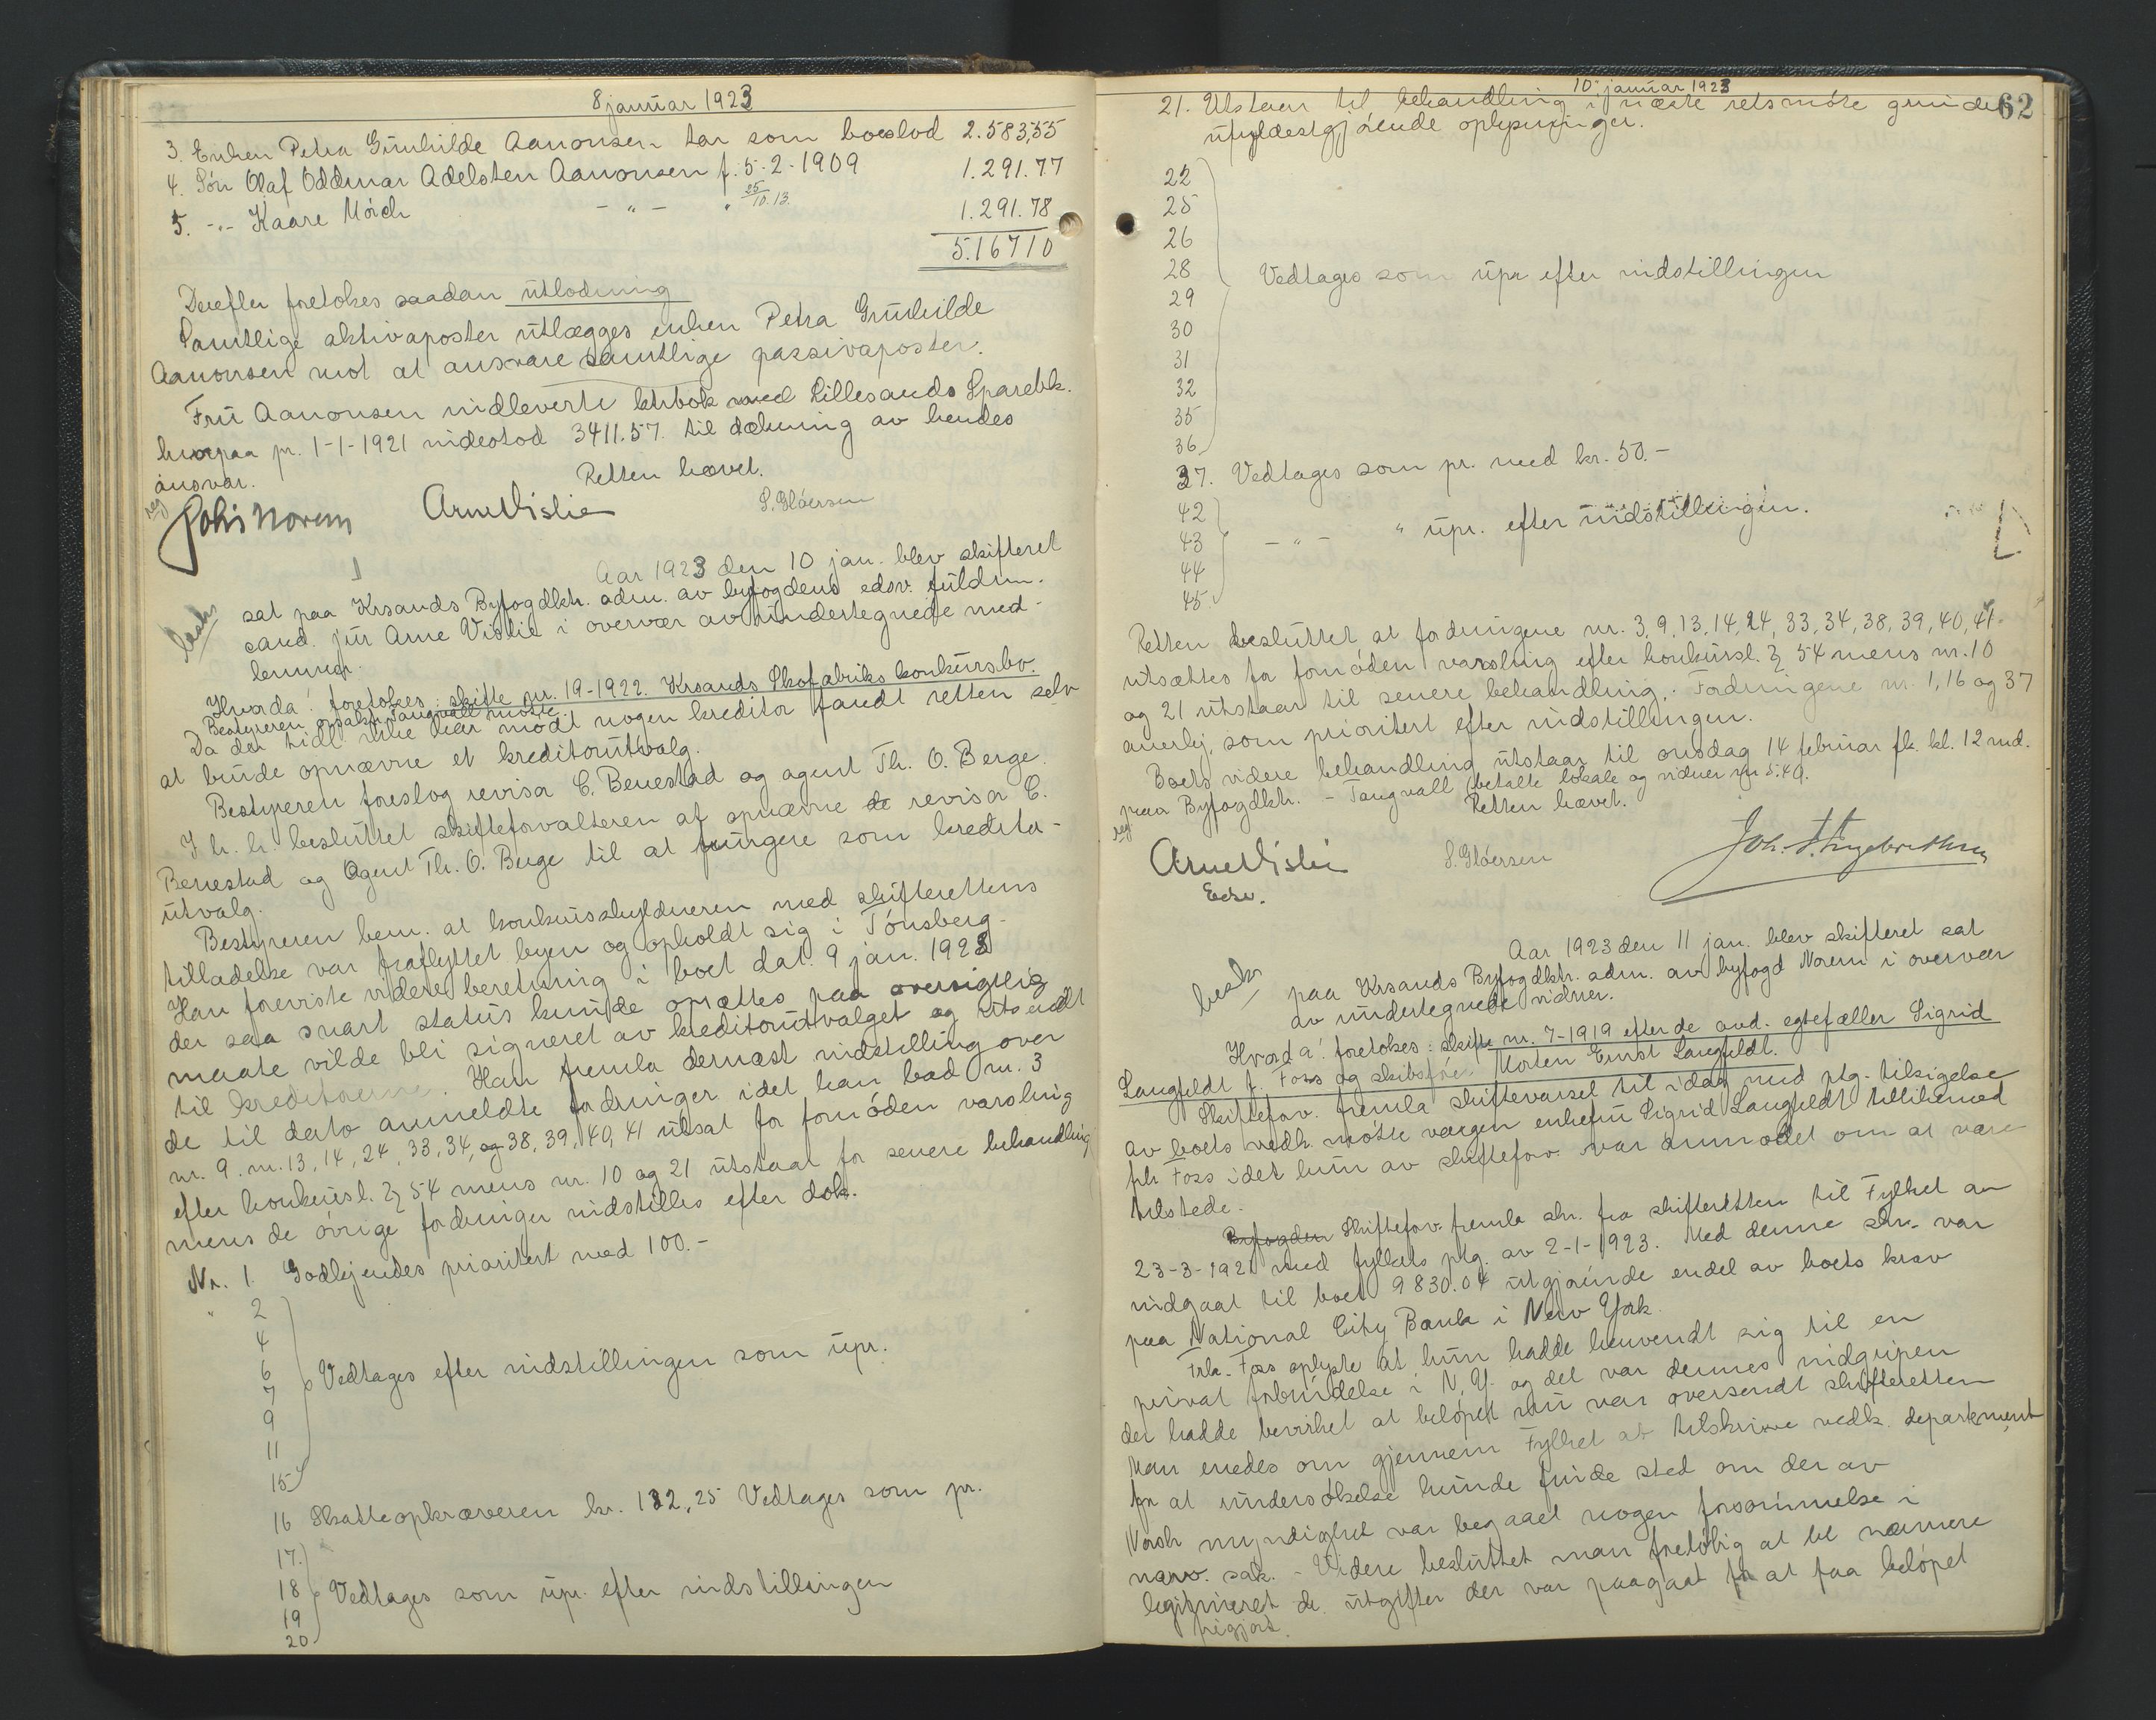 8 januar 1923
3. Enken Petra Gunhilde Aanonsen tar som boeslod 2.583,55
4. Søn Olaf Oddmar Adelsten Aanonsen f. 5-2-1909 1.291.77
5. -"- Kaare Mörch -"- " 25/10.13. 1.291.78
5.16710
Derefter foretokes saadan utlodning
Samtlige aktivaposter utlægges enken Petra Gunhilde
Aanonsen mot at ansvare samtlige passivaposter.
Fru Aanonsen indleverte bok med Lillesands Sparebk.
hvorpaa pr. 1-1-1921 indestod 3411.57. til dækning av hendes
ansvar. Retten hævet.
reg
Johs Norem Arne Vislie S. Gløersen
Aar 1923 den 10 jan. blev skifteret
besk sat paa Krsands Byfogdktr. adm. av byfogdens edsv. fuldm.
cand. jur Arne Vislie i overvær av undertegnede med-
lemmer.
Hvorda! foretokes: skifte nr. 19-1922. Krsands Skofabriks konkursbo.
Bestyreren o.r.sakf. Tangvall møtte.
Da der tidl. ikke har mødt nogen kreditor fandt retten selv
at burde opnævne et kreditorutvalg.
Bestyreren foreslog revisor C. Benestad og agent Th. O. Berge.
I h. h. besluttet skifteforvalteren at opnævne de revisor C.
Benestad og Agent Th. O. Berge til at fungere som kreditor-
utvalg.
Bestyreren bem. at konkursskyldneren med skifterettens
tilladelse var fraflyttet byen og opholdt sig i Tønsberg.
Han foreviste videre beretning i boet dat. 9 jan. 1923
der saa snart status kunde opsættes paa oversigtlig
maate vilde bli signeret av kreditorutvalget og utsendt
til kreditorerne. Han fremla dernæst indstilling over
de til dato anmeldte fordringer idet han bad nr. 3
nr. 9. nr. 13, 14, 24, 33, 34, og 38, 39, 40, 41 utsat for fornøden varsling
efter konkursl. § 54 mens nr. 10 og 21 utstaar for senere behandling
mens de øvrige fordringer indstilles efter dok.
Nr. 1. Godkjendes prioritert med 100.-
" 2
4
6
7 Vedtages efter indstillingen som upr.
9
11
15
16 Skatteopkræveren kr. 122,25 Vedtages som pr.
17.
18 Vedtages som upr. efter indstillingen
19
20
10. januar 1923
62
21. Utstaar til behandling i næste retsmøte grundet
ufyldestgjørende oplysninger.
22
25
26
28 Vedtages som upr efter indstillingen
29
30
31
32
35
36
37. Vedtages som pr. med kr. 50.-
42
43 -"- " upr. efter indstillingen.
44
45
Retten besluttet at fordringene nr. 3, 9, 13, 14, 24, 33, 34, 38, 39, 40, 41
utsættes for fornøden varsling efter konkursl. § 54 mens nr. 10
og 21 utstaar til senere behandling. Fordringene nr. 1, 16 og 37
anerkj. som prioritert efter indstillingen.
Boets videre behandling utstaar til onsdag 14 februar fk. kl. 12 md.
paa Byfogdktr. - Tangvall betalte lokale og vidner m 5.40.
Retten hævet.
reg
Arne Vislie S. Gløersen Joh. F. Ingebrethsen
Edsv.
Aar 1923 den 11 jan. blev skifteret sat
besk paa Krsands Byfogdktr. adm. av byfogd Norem i overvær
av undertegnede vidner.
Hvorda! foretokes: skifte nr. 7-1919 efter de avd. egtefæller Sigrid
Langfeldt f. Foss og skibsfører Morten Ernst Langfeldt.
Skiftefov. fremla skiftevarsel til idag med ptg. tilsigelse
av boets vedk. møtte værgen enkefru Sigrid Langfeldt tillikemed
frk Foss idet hun av skiftefov. var anmodet om at være
tilstede.
Byfogden Skiftefov. fremla skr. fra skifteretten til Fylket av
23-3-1921 med fylkets ptg. av 2-1-1923. Med denne skr. var
indgaat til boet 9830.04 utgjørende endel av boets krav
paa National City Bank i New York.
Frk. Foss oplyste at hun hadde henvendt sig til en
privat forbindelse i N.Y. og det var dennes indgripen
der hadde bevirket at beløpet nu var oversendt skifteretten
Man enedes om gjennem Fylket at tilskrive vedk. departement
for at undersøkelse kunde finde sted om der av
Norsk myndighet var begaaet nogen forsømmelse i
nærv. sak. - Videre besluttet man foreløbig at bli nærmere
legitimeret de utgifter der var paagaat for at faa beløpet
frigjort.